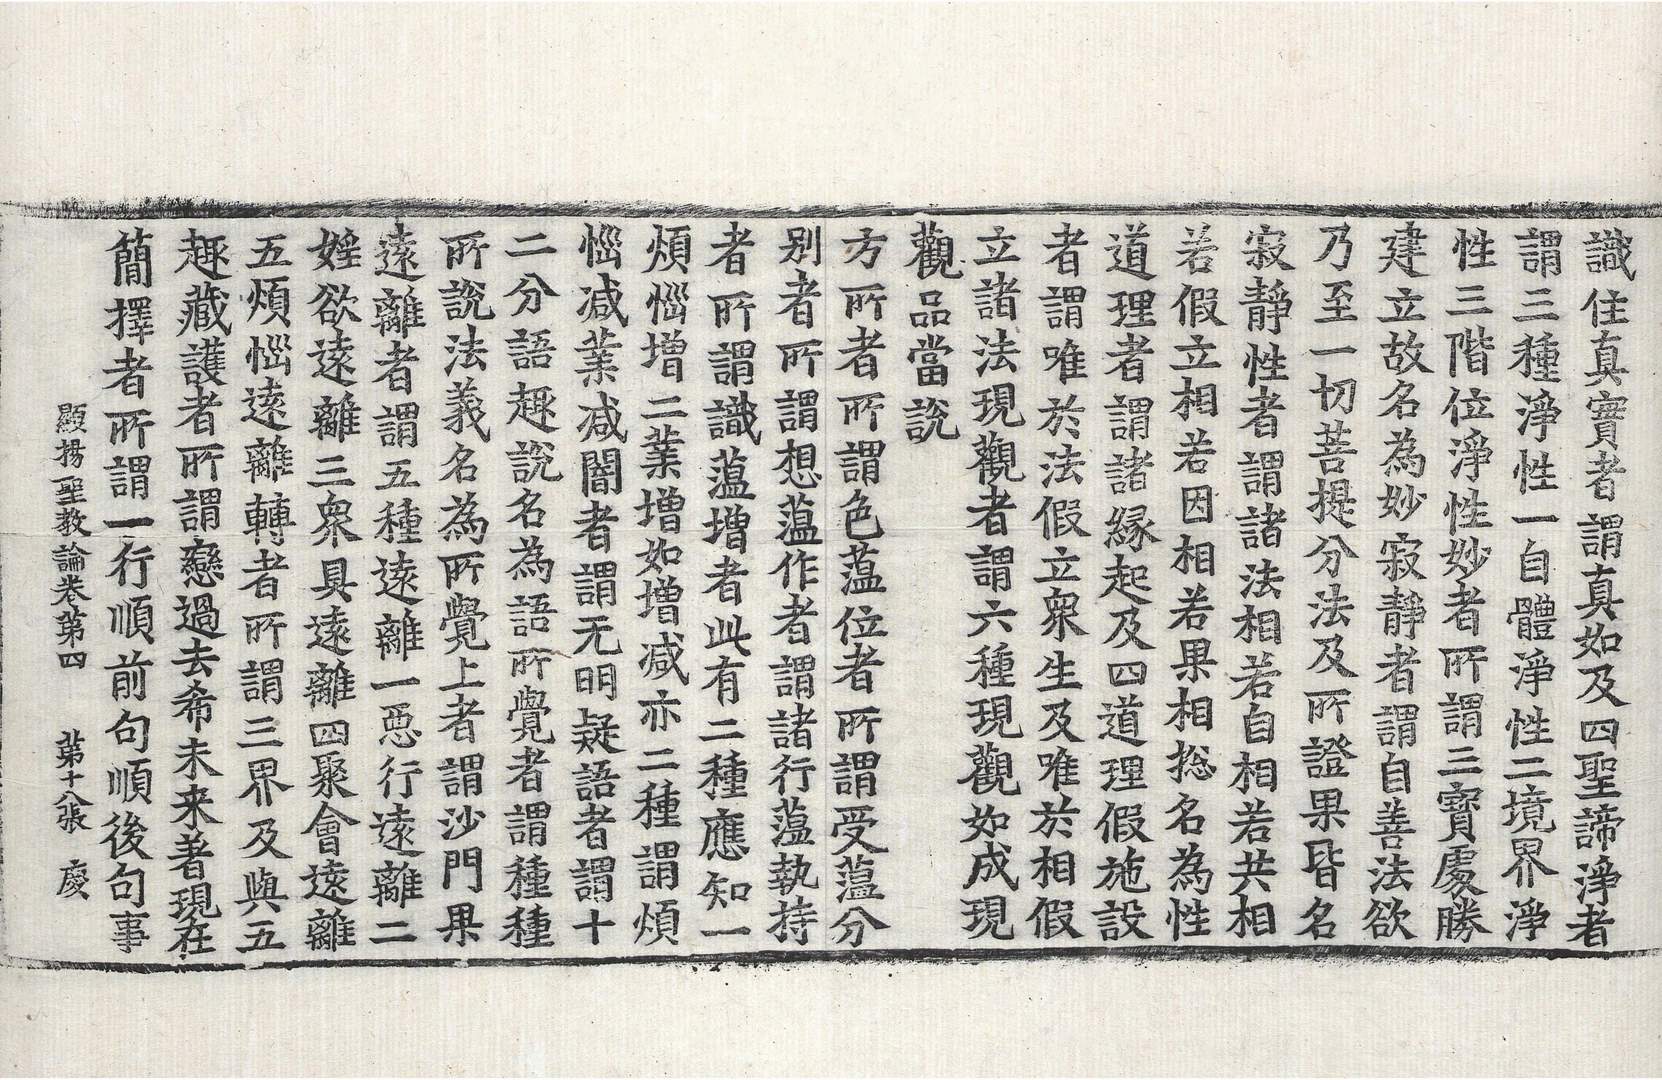 識住真實者謂真如及四聖諦淨者
謂三種淨性一自體淨性二境界淨
性三階位淨性妙者所謂三寶處勝
建立故名為妙寂靜者謂自善法欲
乃至一切菩提分法及所證果皆名
寂靜性者謂諸法相若自相若共相
若假立相若因相若果相揔名為性
道理者謂諸緣起及四道理假施設
者謂唯於法假立衆生及唯於相假
立諸法現觀者謂六種現觀如成現
觀品當說
方所者所謂色蕰位者所謂受蕰分
別者所謂想蕰作者謂諸行蕰執持
者所謂識蕰增者此有二種應知一
煩惱增二業增如增減亦二種謂煩
惱减業减闇者謂无明疑語者謂十
二分語趣說名為語所覺者謂種種
所說法義名為所覺上者謂沙門果
遠離者謂五種遠離一惡行遠離二
婬欲遠離三衆具遠離四聚會遠離
五煩惱遠離轉者所謂三界及與五
趣藏護者所謂戀過去希未来著現在
簡擇者所謂一行順前句順後句事
顯揚聖教論卷第四 第十八張 慶